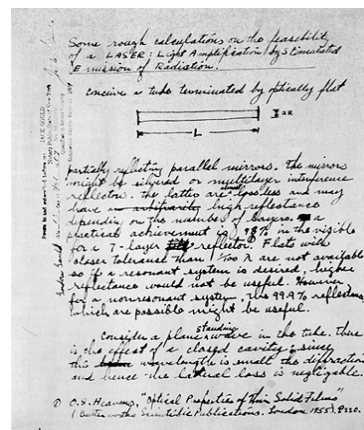 Some rough calculations on the feasibility
of a LASER: Light Amplification by Stimulated
Emission of Radiation.
conceive a tube terminated by optically flat
L
partially reflecting parallel mirrors. The mirrors
might be silvered or multilayer interference
reflectors. The latter are lossless and may
have high reflectance
depending on the number of layers. A
practical achievement is 98% in the visible
for a 7-layer reflector. Flats with
closer tolerance than 1/100 λ are not available
so if a resonant system is desired, higher
reflectance would not be useful. However,
for a nonresonant system, the 99.9% reflectances
which are possible might be useful.
Consider a plane standing wave in the tube. There
is the effect of a closed cavity; since
this wavelength is small the diffraction
and hence the lateral loss is negligable.
O.S. Heavens, "Optical Properties of Thin Solid Films"
(Butterworths Scientific Publications. London 1955) P.220.
JACK GOULD